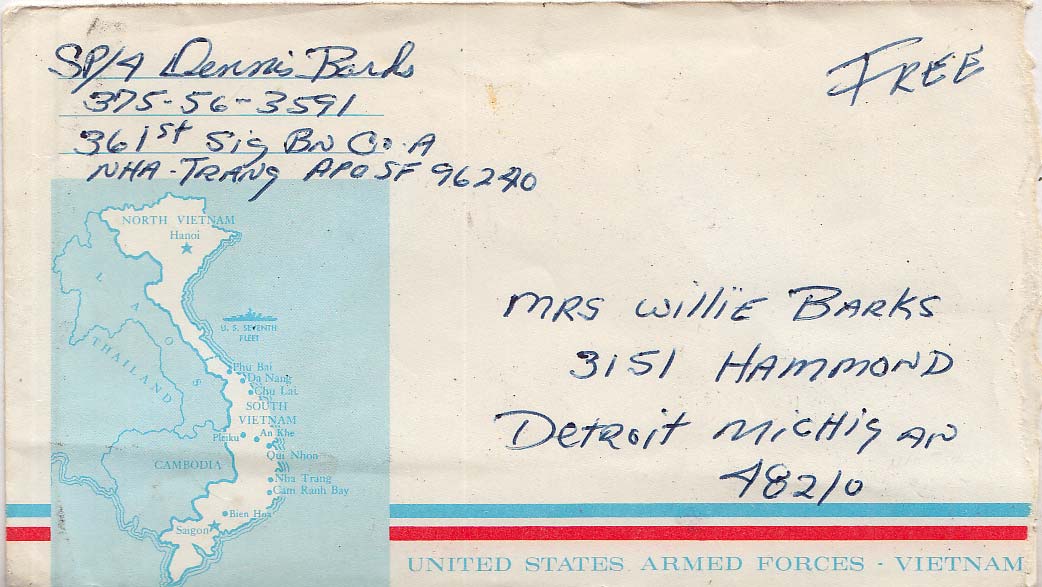 SP/4 Dennis Barks
375-56-3591
361st Sig BN Co. A
NHA-TRANG APO SF 96240
FREE
MRS Willie BARKS
3151 HAMMOND
Detroit MicHigAN
48210
NORTH VIETNAM
Hanoi
LAOS
THAILAND
U. S. SEVENTH
FLEET
Phu Bai
Da Nang
Chu Lai
SOUTH
VIETNAM
Pleiku
An Khe
Qui Nhon
CAMBODIA
Nha Trang
Cam Ranh Bay
Bien Hoa
Saigon
UNITED STATES ARMED FORCES - VIETNAM